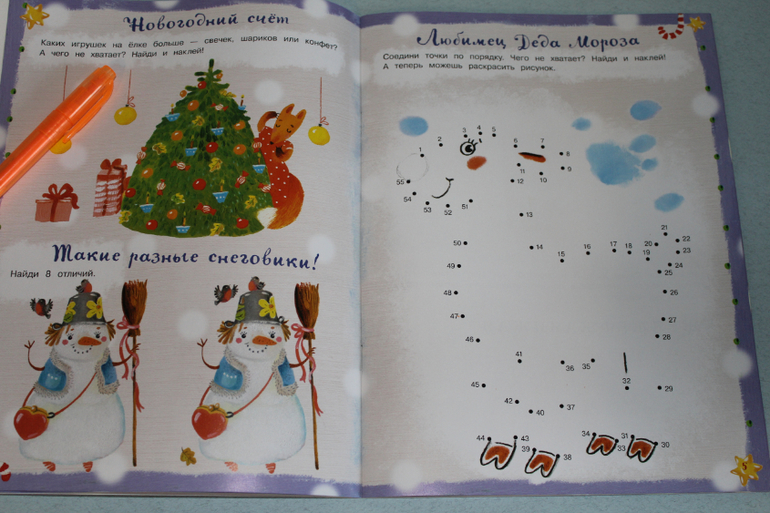 Новогодний счёт
Каких игрушек на ёлке больше — свечек, шариков или конфет?
А чего не хватает? Найди и наклей!
Такие разные снеговики!
Найди 8 отличий.
Любимец Деда Мороза
Соедини точки по порядку. Чего не хватает? Найди и наклей!
А теперь можешь раскрасить рисунок.
3 4 5
2 6 7
1 8
11 9
55 12 10
54 53 52 51
13
21
50 14 15 16 17 18 20 22
19 23
49 24
25
48 26
47 27
46 28
41 36 35
45 32 29
42 40 37
44 43 34 31 30
39 38 33
5